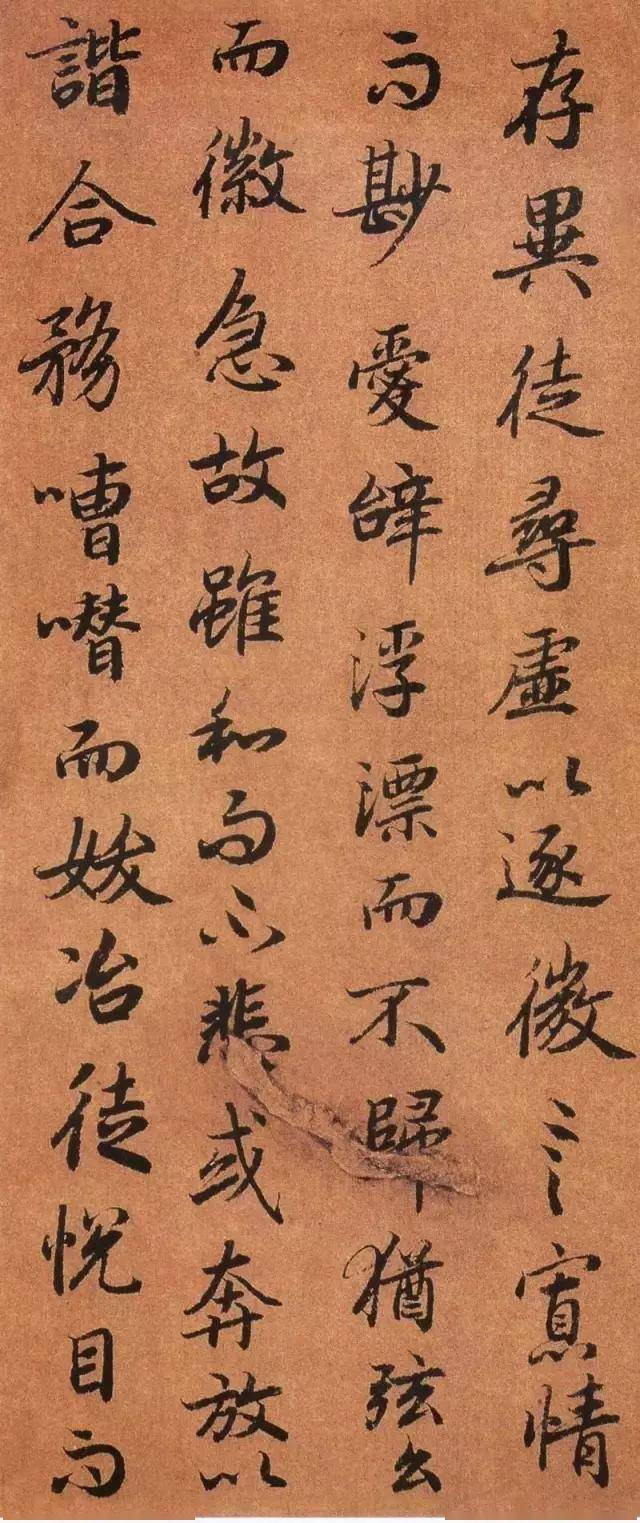 存異徒尋虛以逐微言寡情
而尠愛辭浮漂而不歸猶弦么
而徽急故雖和而不悲或奔放以
諧合務嘈噆而妖冶徒悅目而